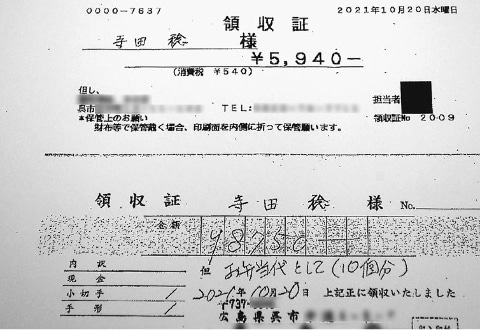 0000-7637 2021年10月20日水曜日
領収証
寺田稔 様
¥5,940-
(消費税 ¥540)
但し、
呉市 TEL:
担当者
*保管上のお願い 領収証No 2009
財布等で保管戴く場合、印刷面を内側に折って保管願います。
領収証 寺田稔 様 No.
金額
内訳
但 お弁当代として(10個分)
現金
小切手 2021年10月20日 上記正に領収いたしました
手形 〒737-
広島県呉市